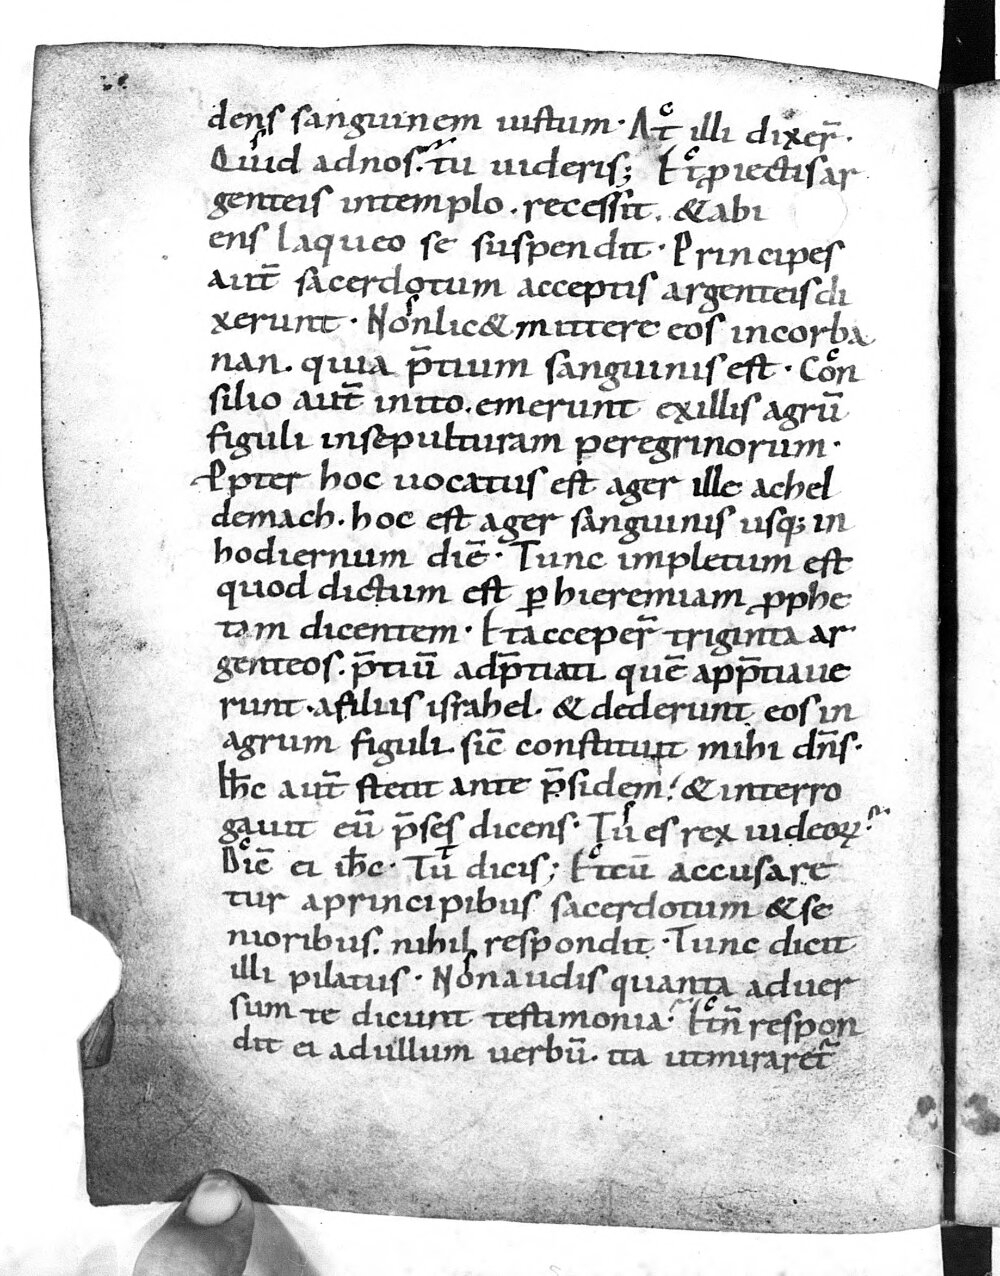 dens sanguinem iustum· At illi dixer̄·
Quid adnos· tu uideris; Et ꝓiectis ar
genteis intemplo· recessit· & abi
ens laqueo se suspendit· Principes
aut̄ sacerdotum acceptis argenteis di
xerunt· Non lic& mittere eos incorba
nan· quia p̄tium sanguinis est· Con
silio aut̄ inito· emerunt exillis agrū
figuli insepulturam peregrinorum·
Ꝓpter hoc uocatus est ager ille achel
demach· hoc est ager sanguinis usq; in
hodiernum diē· Tunc impletum est
quod dictum est ꝑ hieremiam ꝓphe
tam dicentem· Et acceper̄ triginta ar
genteos· p̄tiū adp̄tiati quē app̄tiaue
runt· afiliis israhel· & dederunt eos in
agrum figuli sic̄ constituit mihi dn̄s·
Ih̄c aut̄ stetit ante p̄sidem· & interro
gauit eū p̄ses dicens· Tu es rex iudeoꝝ·
Dic̄ ei ih̄c· Tu dicis; Et cū accusare
tur aprincipibus sacerdotum & se
nioribus· nihil respondit· Tunc dicit
illi pilatus· Non audis quanta aduer
sum te dicunt testimonia· Et n̄ respon
dit ei adullum uerbū· ita utmiraret̄